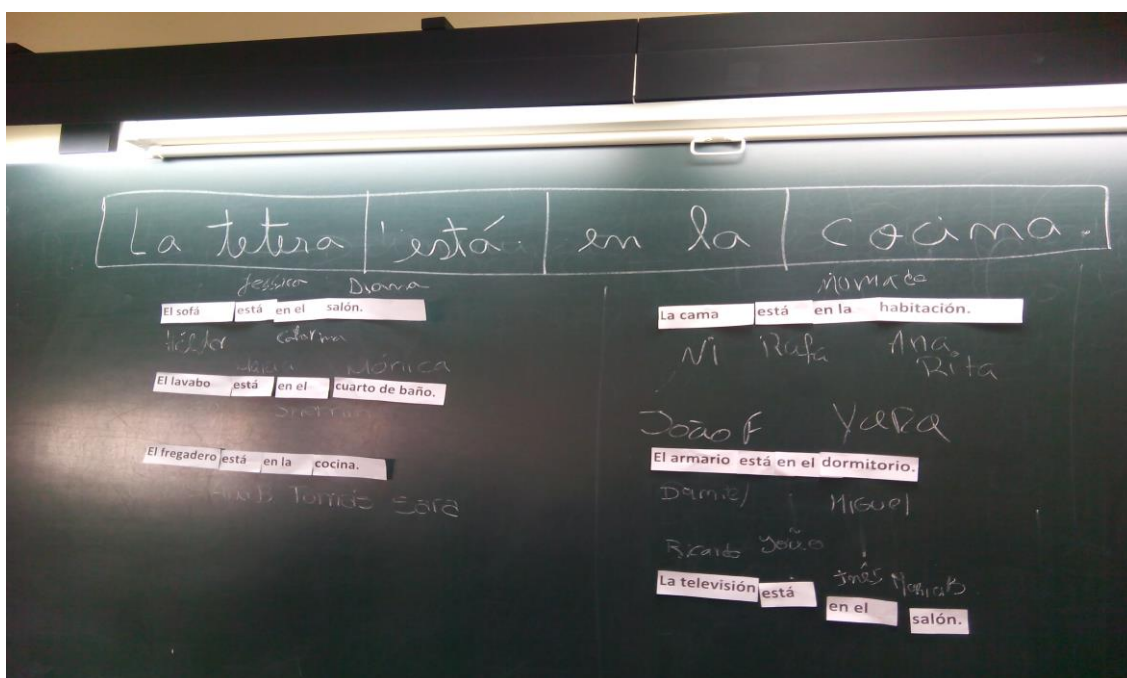 La tetera está en la cocina.
Jessica Diana
El sofá está en el salón.
Hélder Catarina
Mónica
El lavabo está en el cuarto de baño.
El fregadero está en la cocina.
Tomás Sara
La cama está en la habitación.
Vi Rafa Ana Rita
João F Yara
El armario está en el dormitorio.
Daniel Miguel
Ricardo João
Inês Maria B
La televisión está en el salón.